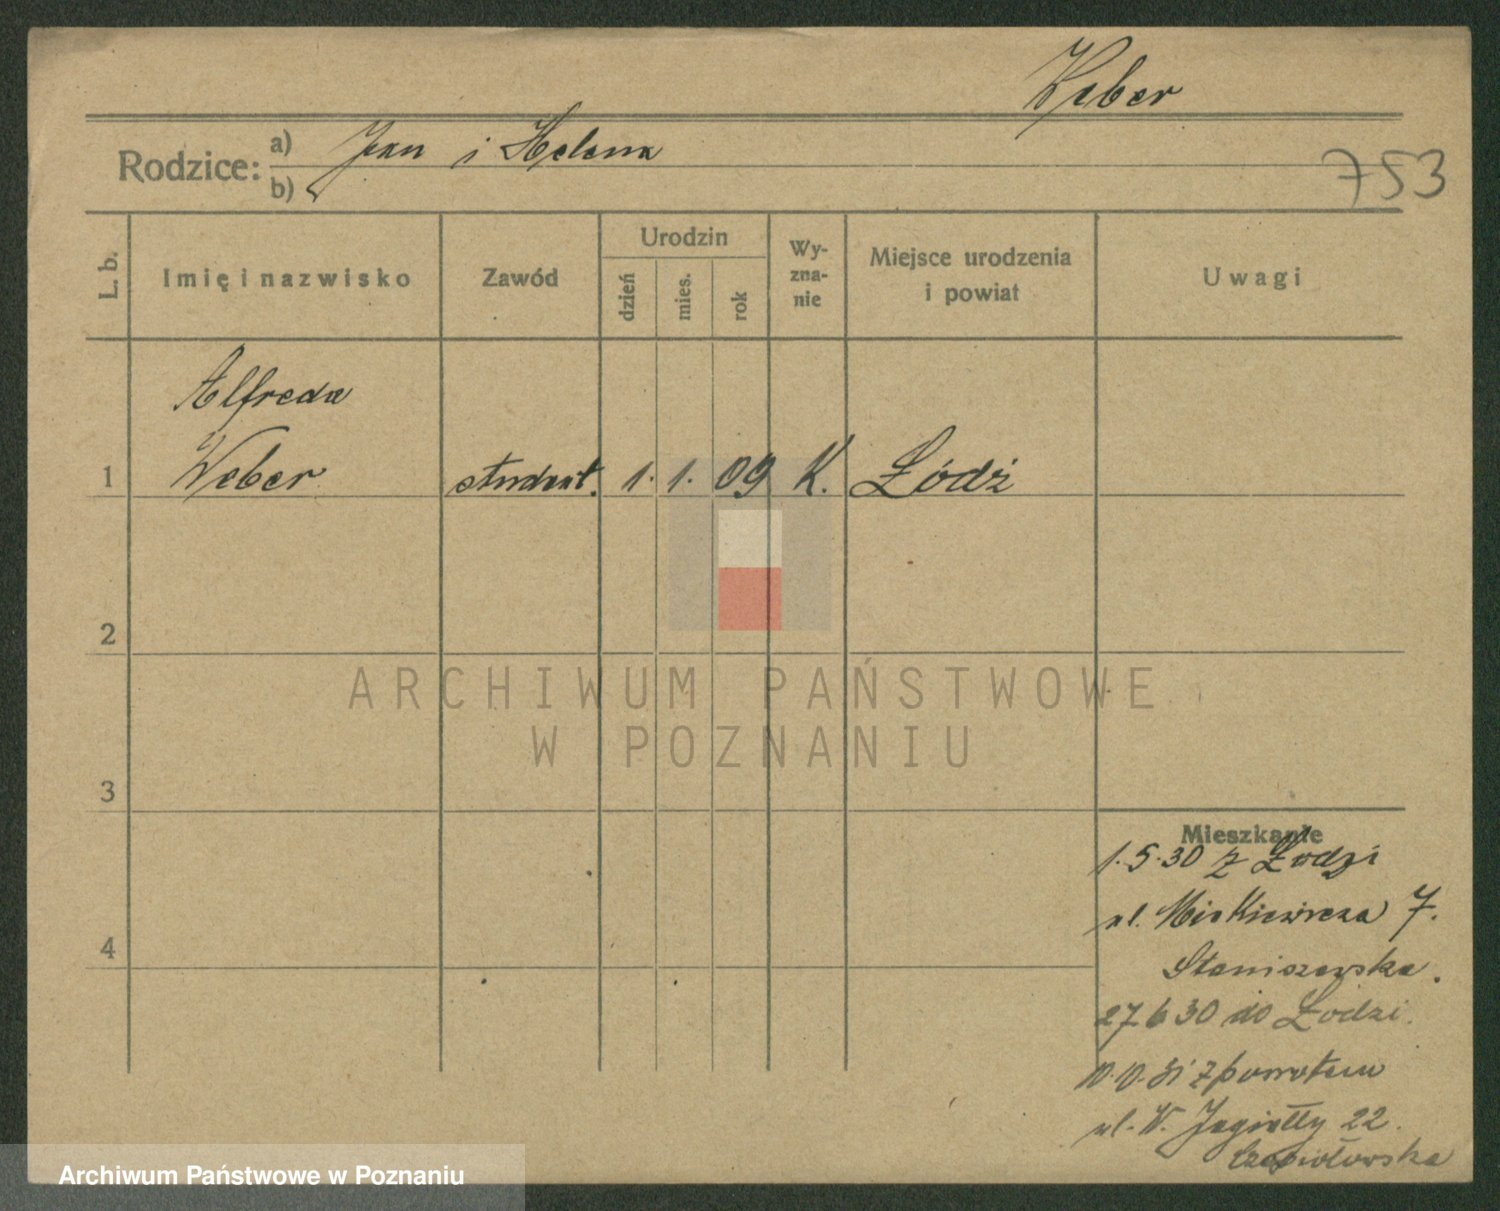 Weber
Rodzice: a) Jan i Helena
b)
753
L. b.
Imię i nazwisko
Zawód
Urodzin
dzień
mies.
rok
Wy-
zna-
nie
Miejsce urodzenia
i powiat
Uwagi
Alfreda
1 Weber student. 1. 1. 09 K. Łódź
2
ARCHIWUM PAŃSTWOWE
W POZNANIU
3
Mieszkanie
1.5.30 z Łodzi
ul. Mickiewicza 7.
Staniszewska.
4
27 6 30 do Łodzi.
10.10.31 z powrotem
ul. W. Jagiełły 22.
Archiwum Państwowe w Poznaniu